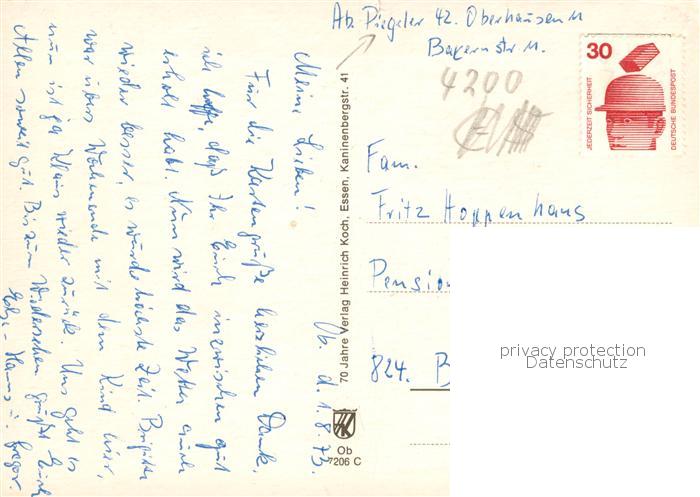 Ab. Piegeler 42. Oberhausen 11
Bayernstr 11.
4200
30
JEDERZEIT SICHERHEIT
DEUTSCHE BUNDESPOST
Fam.
Fritz Hoppenhaus
Pension
824. B
privacy protection
Datenschutz
Ob. d. 1.8.73.
Meine Lieben!
Für die Kartengrüße herzlichen Dank.
ich hoffe, daß Ihr Euch inzwischen gut
erholt habt. Nun wird das Wetter auch
wieder besser, es wurde höchste Zeit. Brigitte
war übers Wochenende mit dem Kind hier,
nun ist ja Klaus wieder zurück. Uns geht es
Allen soweit gut. Bis zum Wiedersehen grüßt Euch
Hans u. Gregor.
70 Jahre Verlag Heinrich Koch, Essen, Kaninenbergstr. 41
Ob
7206 C